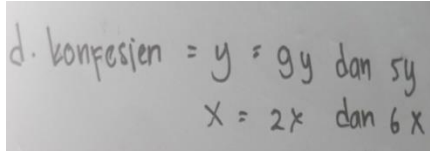 d. konfesien = y = 9y dan 5y
x = 2x dan 6x